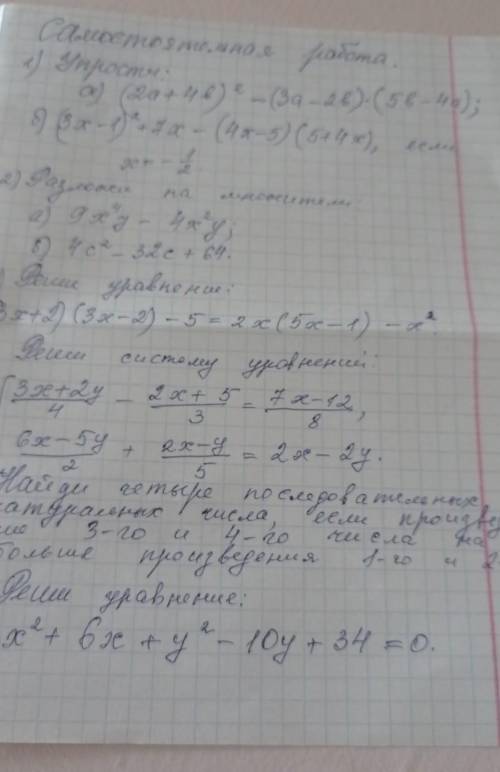 Самостоятельная работа.
1) Упрости:
а) (2a+4b)² - (3a-2b)·(5b-4a);
б) (3x-1)²+7x-(4x-5)(5+4x), если
x=-1/2.
2) Разложи на множители
а) 9x⁴y - 4x²y;
б) 4c² - 32c + 64.
) Реши уравнение:
3x+2)(3x-2) - 5 = 2x(5x-1) - x².
Реши систему уравнений:
{(3x+2y)/4 - (2x+5)/3 = (7x-12)/8,
(6x-5y)/2 + (2x-y)/5 = 2x-2y.
Найди четыре последовательных
натуральных числа, если произве
ние 3-го и 4-го числа на
больше произведения 1-го и 2
Реши уравнение:
x² + 6x + y² - 10y + 34 = 0.